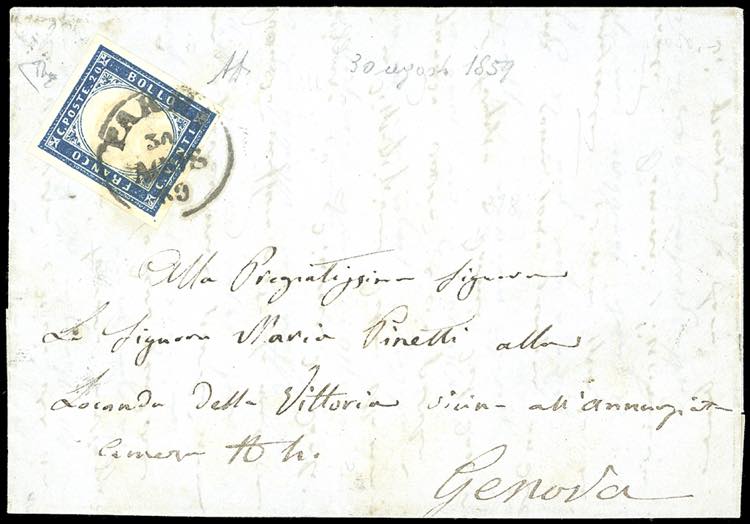 30 agost 1859
C. POSTE 20
BOLLO
C. VENTI
FRANCO
Alla Pregiatissima Signora
La Signora Maria Pinetti alla
Locanda della Vittoria vicina all'annunziata
camera
Genova